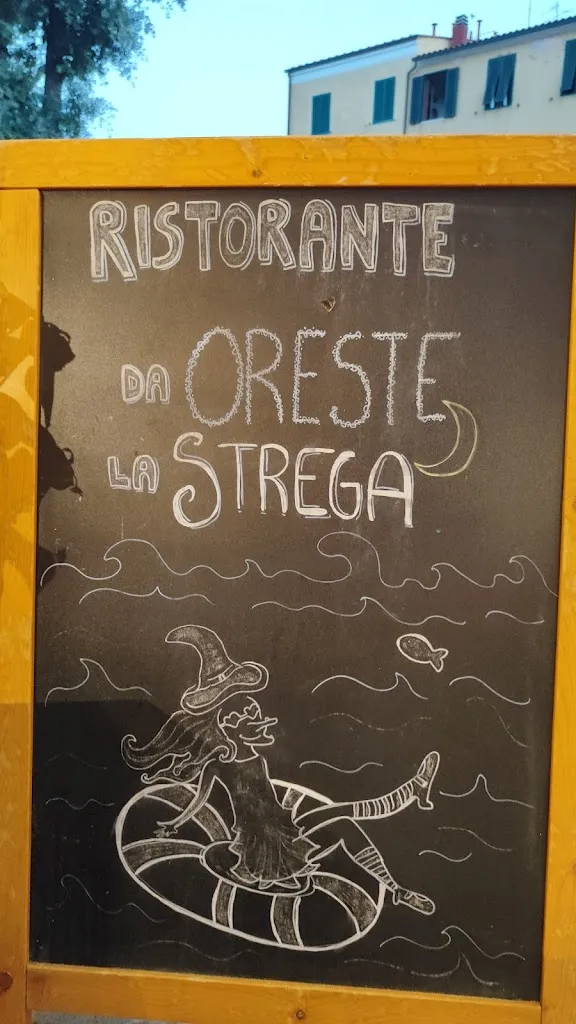 RISTORANTE
DA ORESTE
LA STREGA